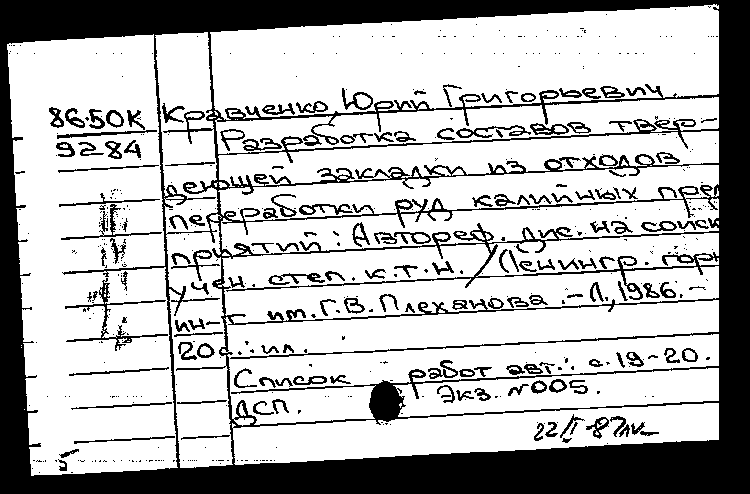 86-50К Кравченко, Юрий Григорьевич.
9284 Разработка составов твер-
деющей закладки из отходов
переработки руд калийных пред
приятий: Автореф. дис. на соиск
учен. степ. к.т.н. / Ленингр. горн
ин-т им. Г.В. Плеханова. - Л., 1986. -
20 с.: ил.
Список работ авт.: с. 19-20.
ДСП. Экз. №005.
22/I-87